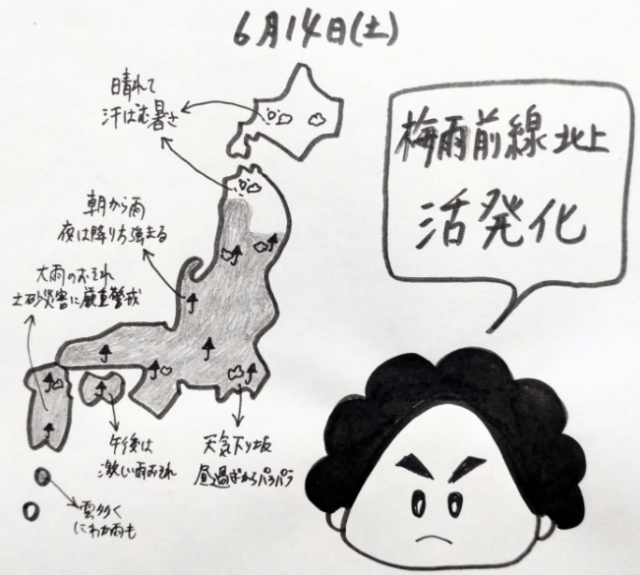 6月14日(土)
梅雨前線北上
活発化
晴れて
汗ばむ暑さ
朝から雨
夜は降り方強まる
大雨のおそれ
土砂災害に厳重警戒
午後は
激しい雨おそれ
天気下り坂
昼過ぎからパラパラ
雲多く
にわか雨も